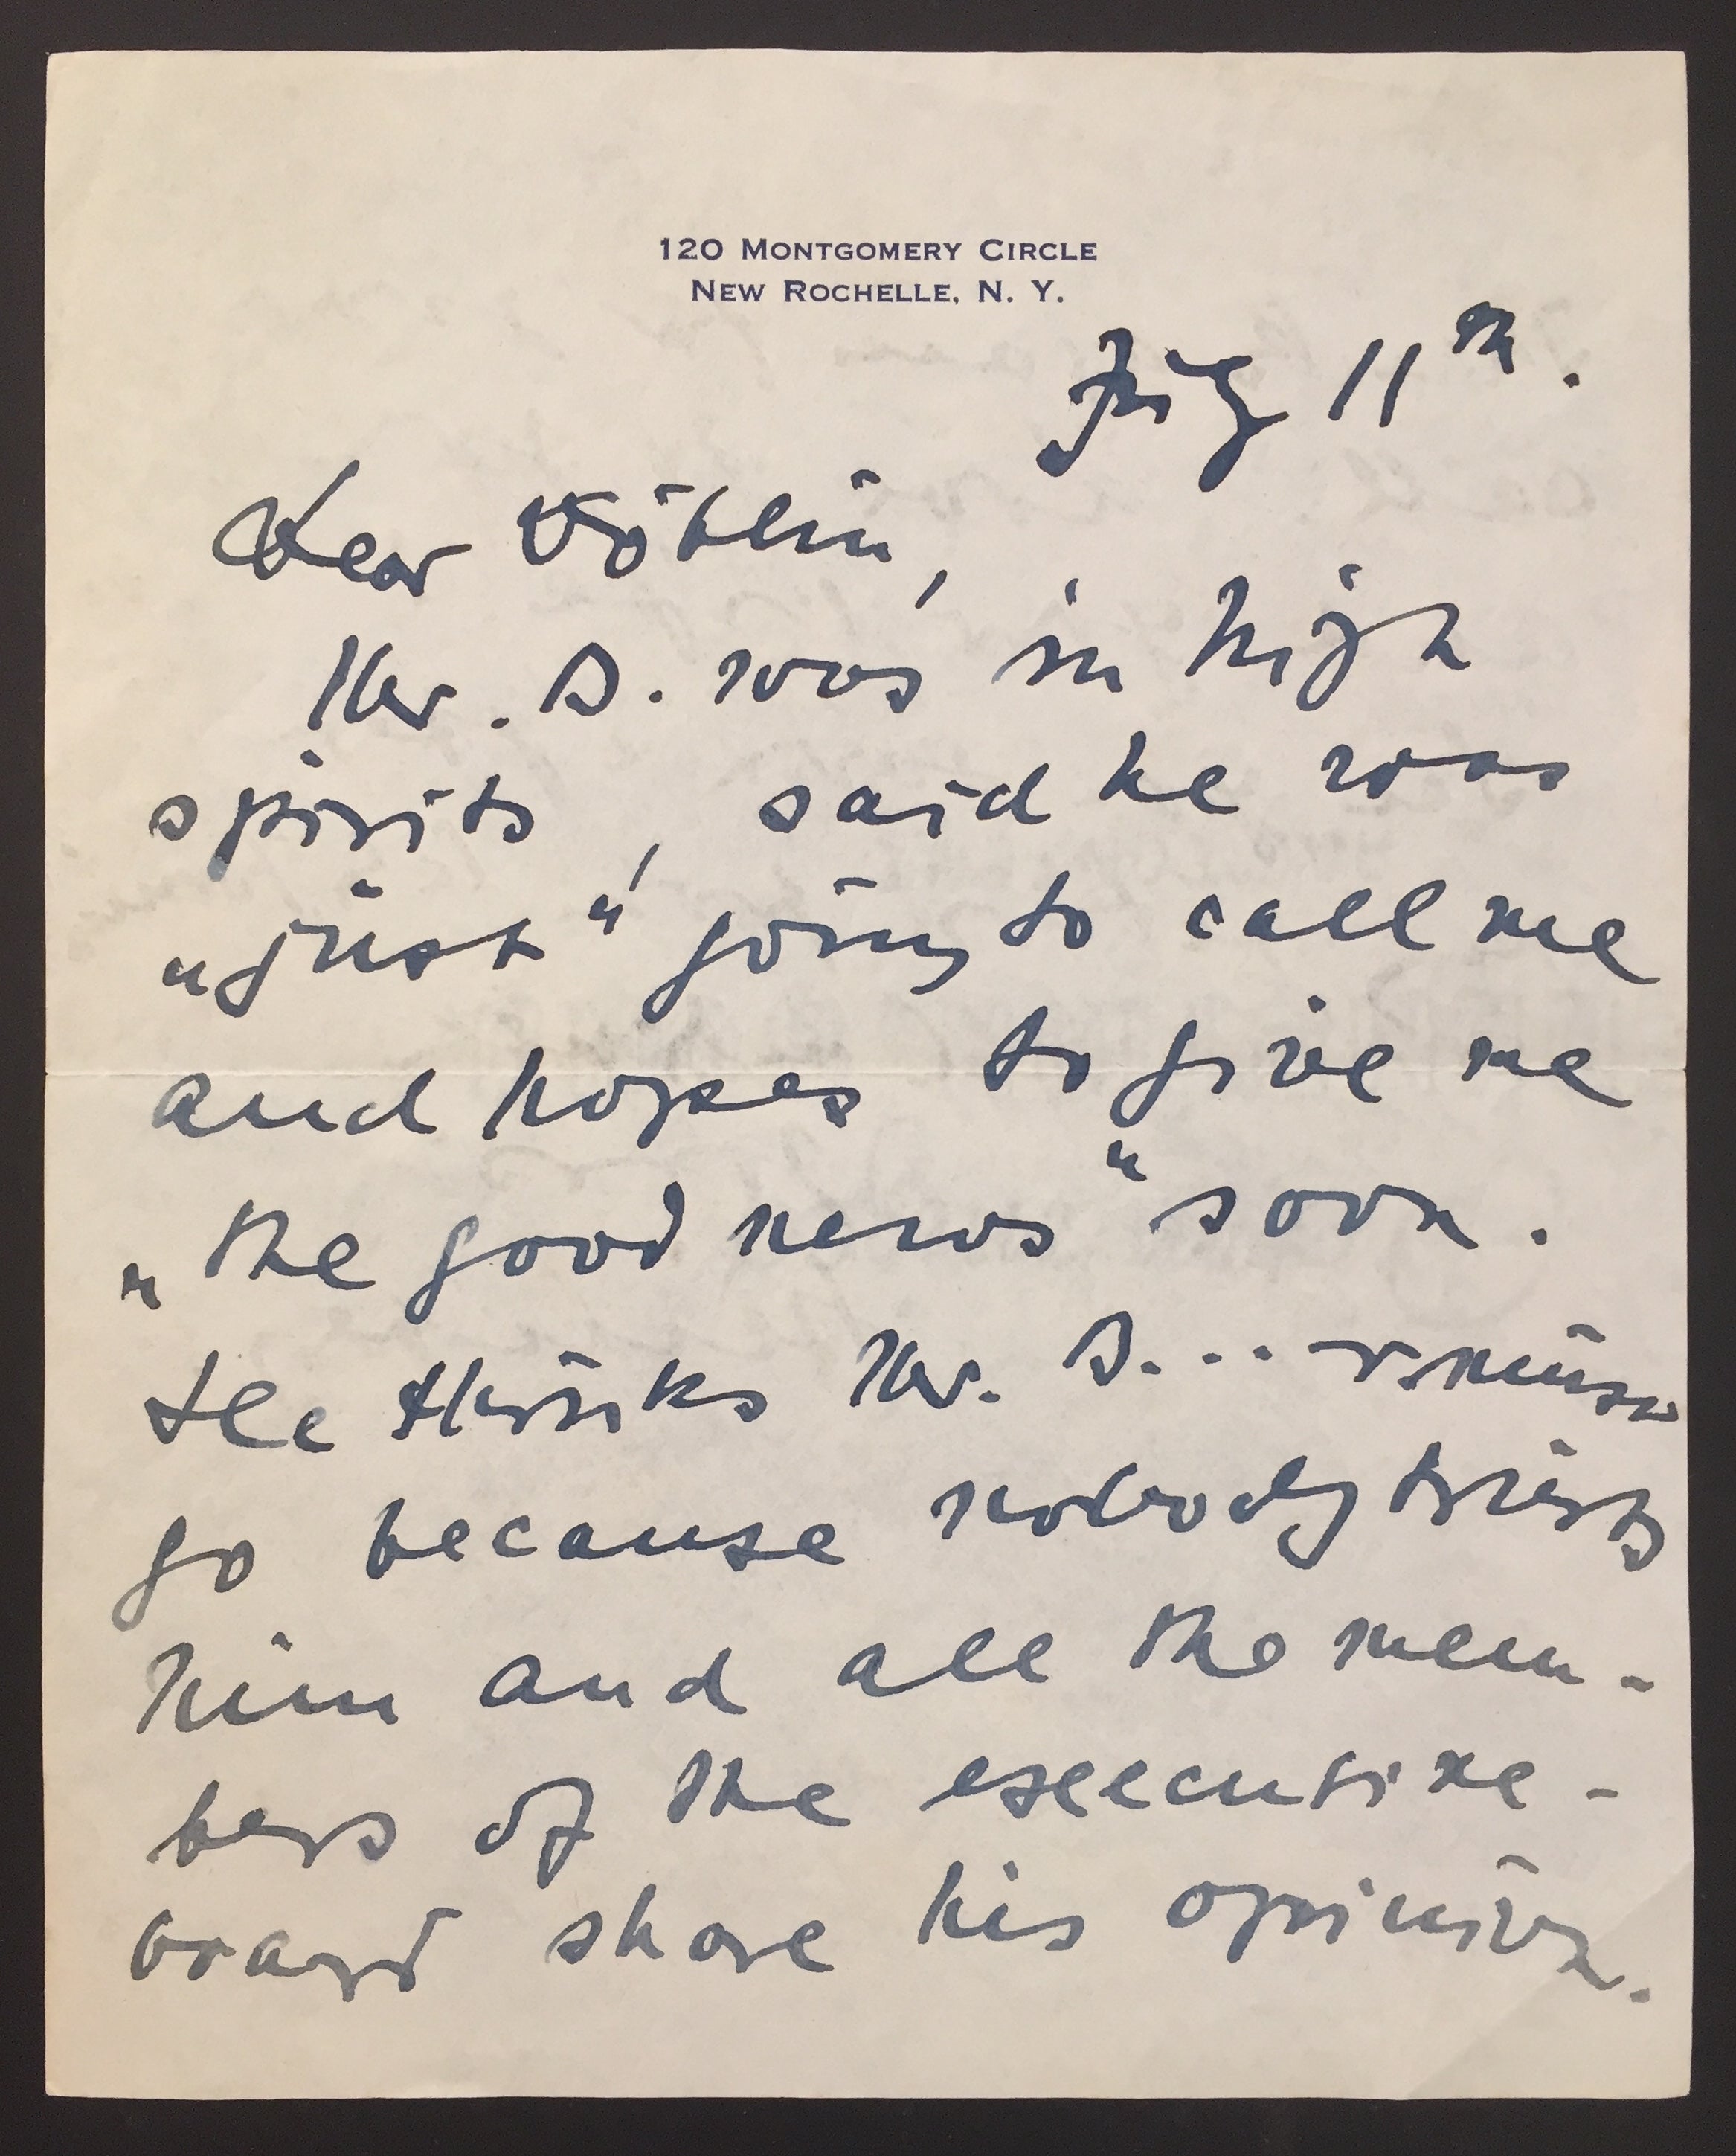 120 MONTGOMERY CIRCLE
NEW ROCHELLE, N. Y.
July 11th.
Dear Döblin,
Mr. D. was in high
spirits, said he was
„just“ going to call me
and hopes to give me
„the good news“ soon.
He thinks Mr. D...r must
go because nobody trusts
him and all the mem-
bers of the executive-
board share his opinion.